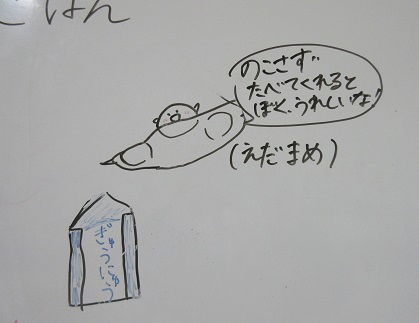 ごはん
のこさず
たべてくれると
ぼく、うれしいな!
(えだまめ)
ぎゅうにゅう